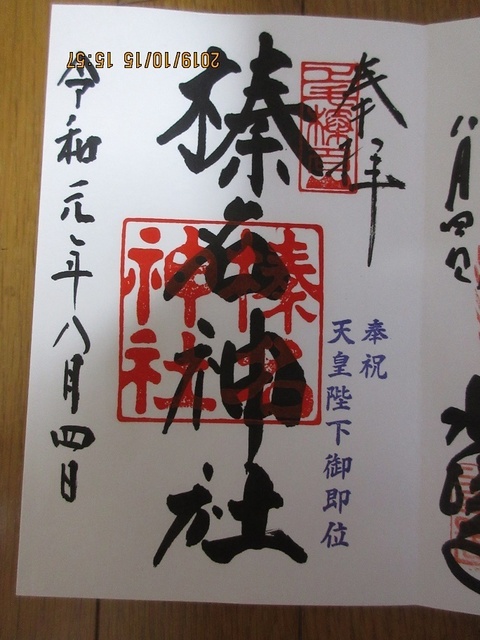 奉拝
奉祝
天皇陛下御即位
榛名神社
榛名
神社
令和元年八月四日
八月四日
2019/10/15 15:57